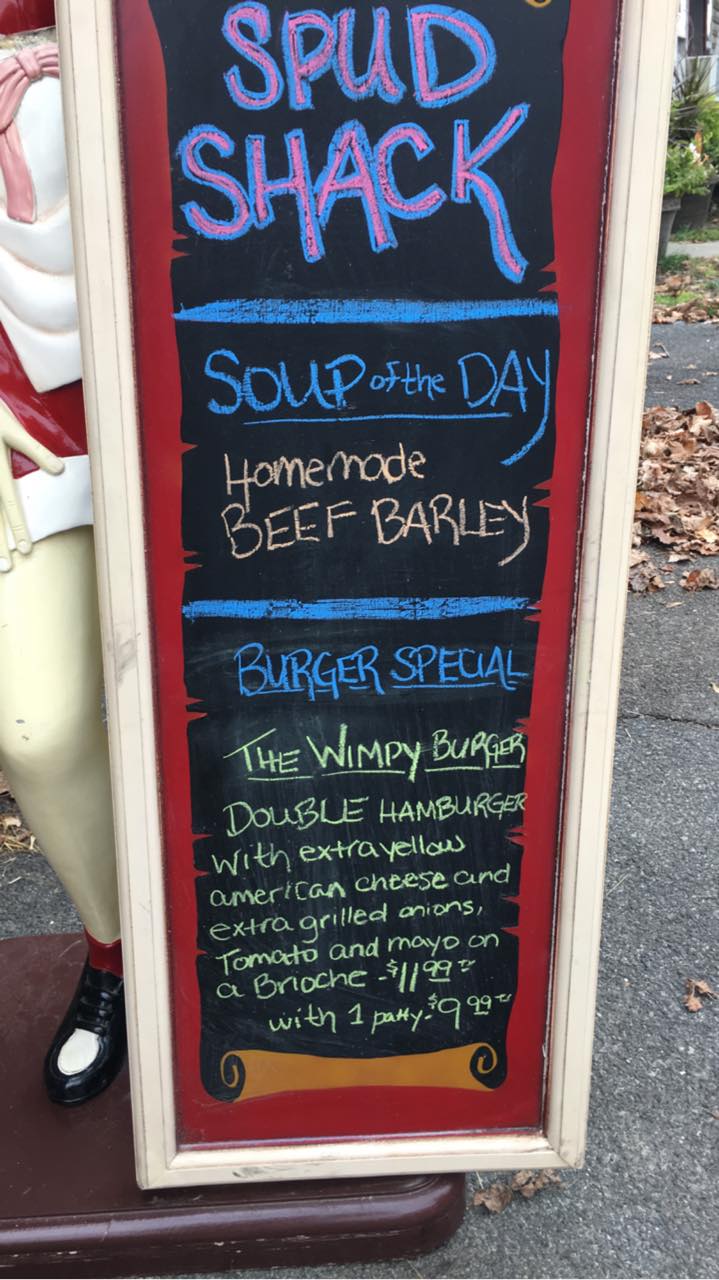 SPUD
SHACK
SOUP of the DAY
Homemade
BEEF BARLEY
BURGER SPECIAL
THE WIMPY BURGER
DOUBLE HAMBURGER
with extra yellow
american cheese and
extra grilled onions,
Tomato and mayo on
a Brioche - $11.99
with 1 patty - $9.99